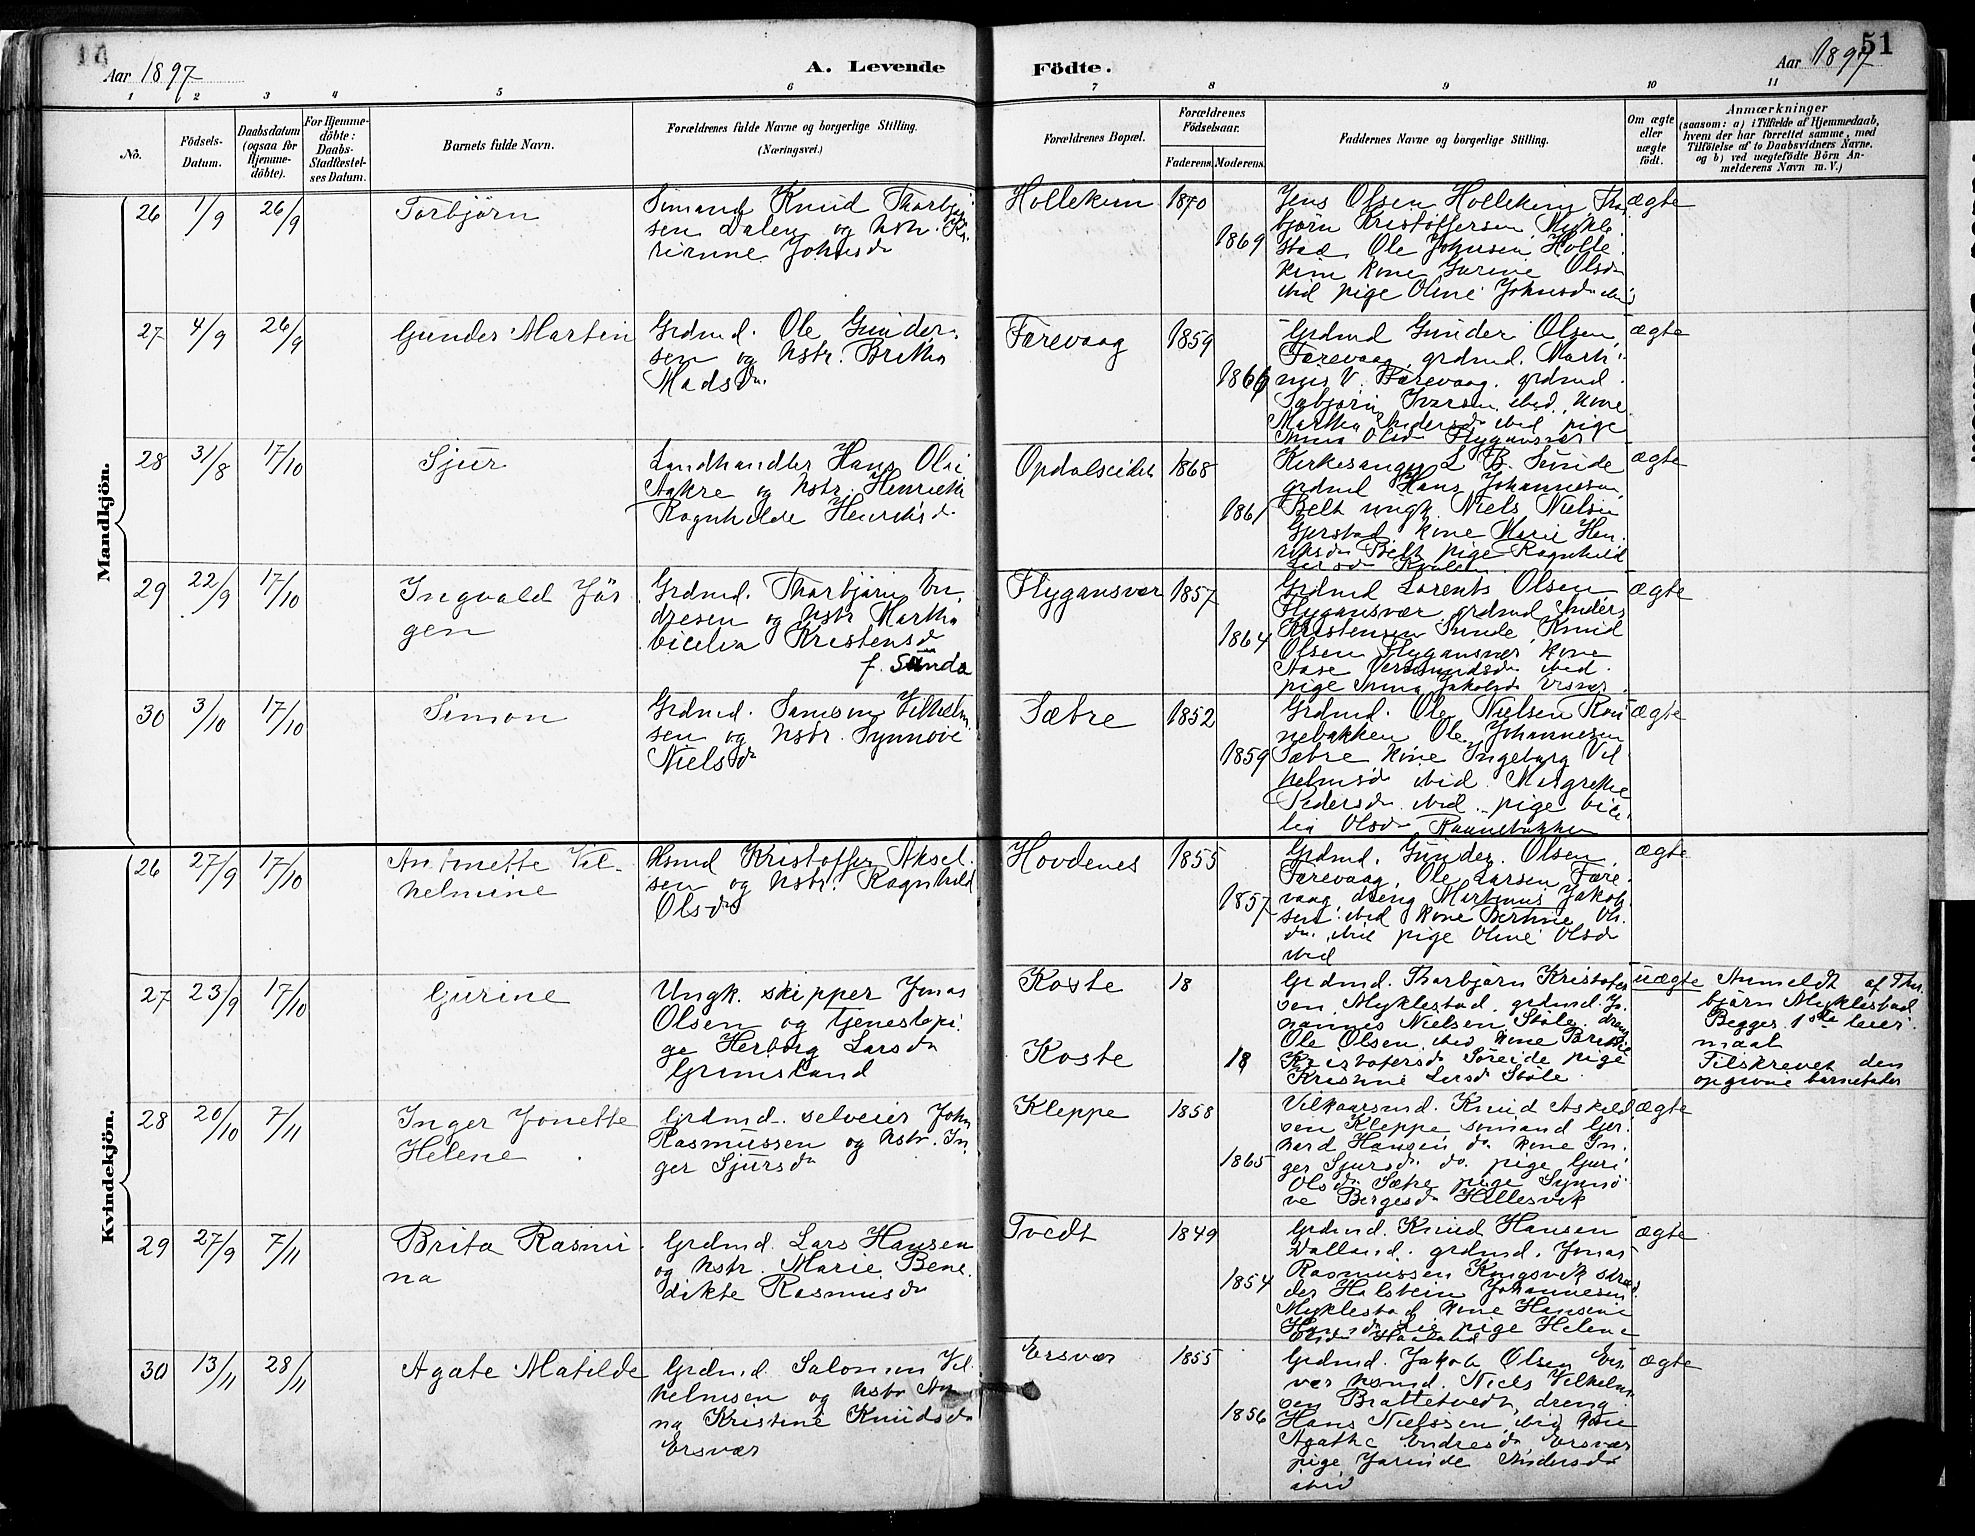 Aar 1897
A. Levende
Födte.
Aar 1897
51
1 2 3 4 5 6 7 8 9 10 11
No.
Födsels-
Datum.
Daabsdatum
(ogsaa for
Hjemme-
döbte).
For Hjemme-
döbte:
Daabs-
Stadfæstel-
ses Datum.
Barnets fulde Navn.
Forældrenes fulde Navne og borgerlige Stilling.
(Næringsvei.)
Forældrenes Bopæl.
Forældrenes
Födselsaar.
Faderens. Moderens.
Faddernes Navne og borgerlige Stilling.
Om ægte
eller
uægte
födt.
Anmærkninger
(saasom: a) i Tilfælde af Hjemmedaab,
hvem der har forrettet samme, med
Tilföielse af to Daabsvidners Navne.
og b) ved uægtefödte Börn An-
melderens Navn m. V.)
Mandkjön.
26 1/9 26/9
Torbjörn
Sömand Knud Thorbjörn
sen Dalen og hstr.
Johnsdr
Hollekim
1870
1869
Jens Olsen Hollekim
björn Kristoffersen Mykle
stad, Ole Johnsen Holle
kim kone Gurine Olsdr
ibid pige Oline Johnsdr ibid
ægte
27 4/9 26/9
Gunder Martin
Grdmd. Ole Gunder-
sen og hstr. Britha
Madsdr.
Færevaag
1859
1866
Grdmd Gunder Olsen
Færevaag, grdmd. Marti
nus V. Færevaag. grdmd.
Sæbjörn Iversen ibid, kone
Martha Andersdr ibid pige
Anna Olsdr Flygansvær
ægte
28 31/8 17/10
Sjur
Landhandler Hans Olai
Aakre og hstr. Henrikke
Ragnhilde Henriksdr.
Opdalseidet
1868
1861
Kirkesanger L. B. Sunde
grdmd Hans Johannesen
Belt ungk. Niels Nielsen
Gjerstad, kone Marie Hen
riksdr Belt pige Ragnhild
ægte
29 22/9 17/10
Ingvald Jör
gen
Grdmd. Thorbjörn En
dresen og hstr Martha
Cicilia Kristensdr
f. Sunde
Flygansvær
1857
1864
Grdmd Lorents Olsen
Flygansvær grdmd Anders
Kristensen Sunde, Knud
Olsen Flygansvær, kone
Aase Vermundsdr ibid.
pige Anna Jakobsdr
ægte
30 3/10 17/10
Simon
Grdmd. Samson Vilhelm
sen og hstr. Synnöve
Nielsdr
Sætre
1852
1859
Grdmd. Ole Nielsen Røn
nebakken Ole Johannesen
Sætre kone Ingeborg Vil
helmsdr ibid. Margrethe
Pedersdr ibid. pige Cici
lia Olsdr
ægte
Kvindekjön.
26 27/9 17/10
Antonette Vil-
helmine
Hsmd Kristoffer Aksel
sen og hstr. Ragnhild
Olsdr
Hovdenes
1855
1857
Grdmd. Gunder Olsen
Færevaag, Ole Larsen Fære
vaag, dreng Martinus Jakob
sen ibid kone Bertine Ols
dr. ibid pige Oline Olsdr
ibid
ægte
27 23/9 17/10
Gurine
Ungk. skipper Jonas
Olsen og tjenestepi
ge Herborg Larsdr
Grimsland
Koste
Koste
18
18
Grdmd. Thorbjörn Kristofer
sen Myklestad, grdmd. Jo
hannes Nielsen Stöle, dreng
Ole Olsen, ibid kone Brithe
Kristofersdr Söreide pige
Kristine Larsdr Stöle
uægte
Anmeldt af Thor
björn Myklestad
Begges 1ste leier
maal
Tilskrevet den
opgivne barnefader
28 20/10 7/11
Inger Jonette
Helene
Grdmd. selveier John
Rasmussen og hstr. In
ger Sjursdr
Kleppe
1858
1865
Vilkaarsmd. Knud Askild
sen Kleppe sömand Ger
hard Hansen do kone In
ger Sjursdr do. pige Guri
Olsdr Sætre pige Synnö
ve Børgesdr Hillesvik
ægte
29 27/9 7/11
Brita Rasmi
na
Grdmd. Lars Hansen
og hstr. Marie Bene
dikte Rasmusdr
Tvedt
1849
1854
Grdmd. Knud Hansen
Valland. grdmd. Jonas
Rasmussen Kingsvik
der Halstein Johannesen
Myklestad kone Hansine
Hansdr pige Helene
ægte
30 13/11 28/11
Agate Matilde
Grdmd. Salomon Vil
helmsen og hstr An
na Kristine Knudsdr
Ersvær
Ersvær
1855
1856
Grdmd. Jakob Olsen Ers
vær hsmd. Niels Vilhelm
sen Brattetvedt, dreng
Hans Nielssen, ibid kone
Agathe Endresdr Ersvær
pige Jorinde Andersdr
ibid
ægte